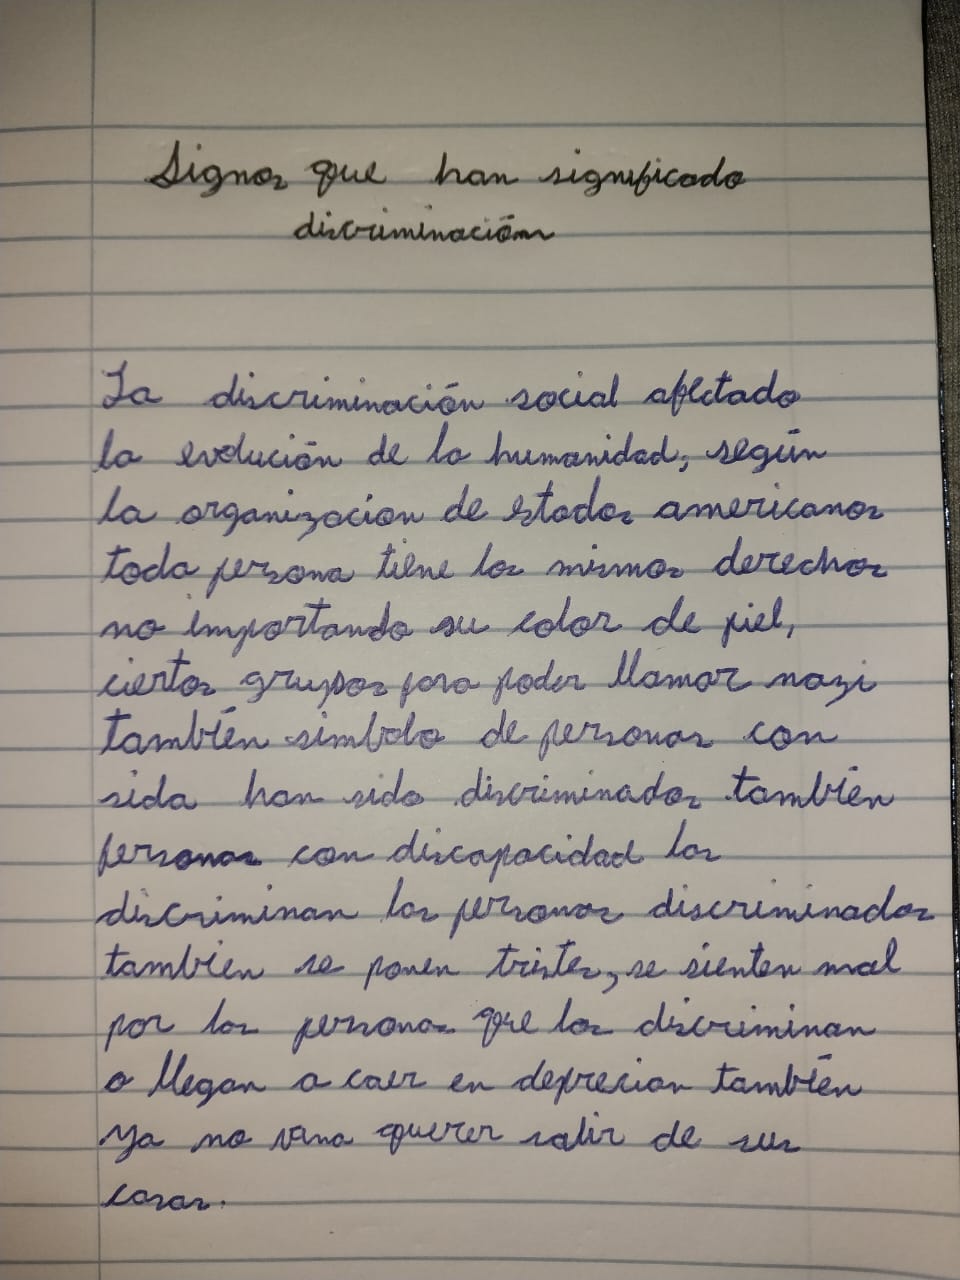 Signos que han significado
discriminación
La discriminación social afectado
la evolución de la humanidad, según
la organizacion de estados americanos
toda persona tiene los mismos derechos
no importando su color de piel,
ciertos grupos para poder llamar nazi
también simbolo de personas con
sida han sido discriminados también
personas con discapacidad los
discriminan las personas discriminadas
tambien se ponen tristes, se sienten mal
por las personas que los discriminan
o llegan a caer en deprecion también
ya no vana querer salir de sus
casas.